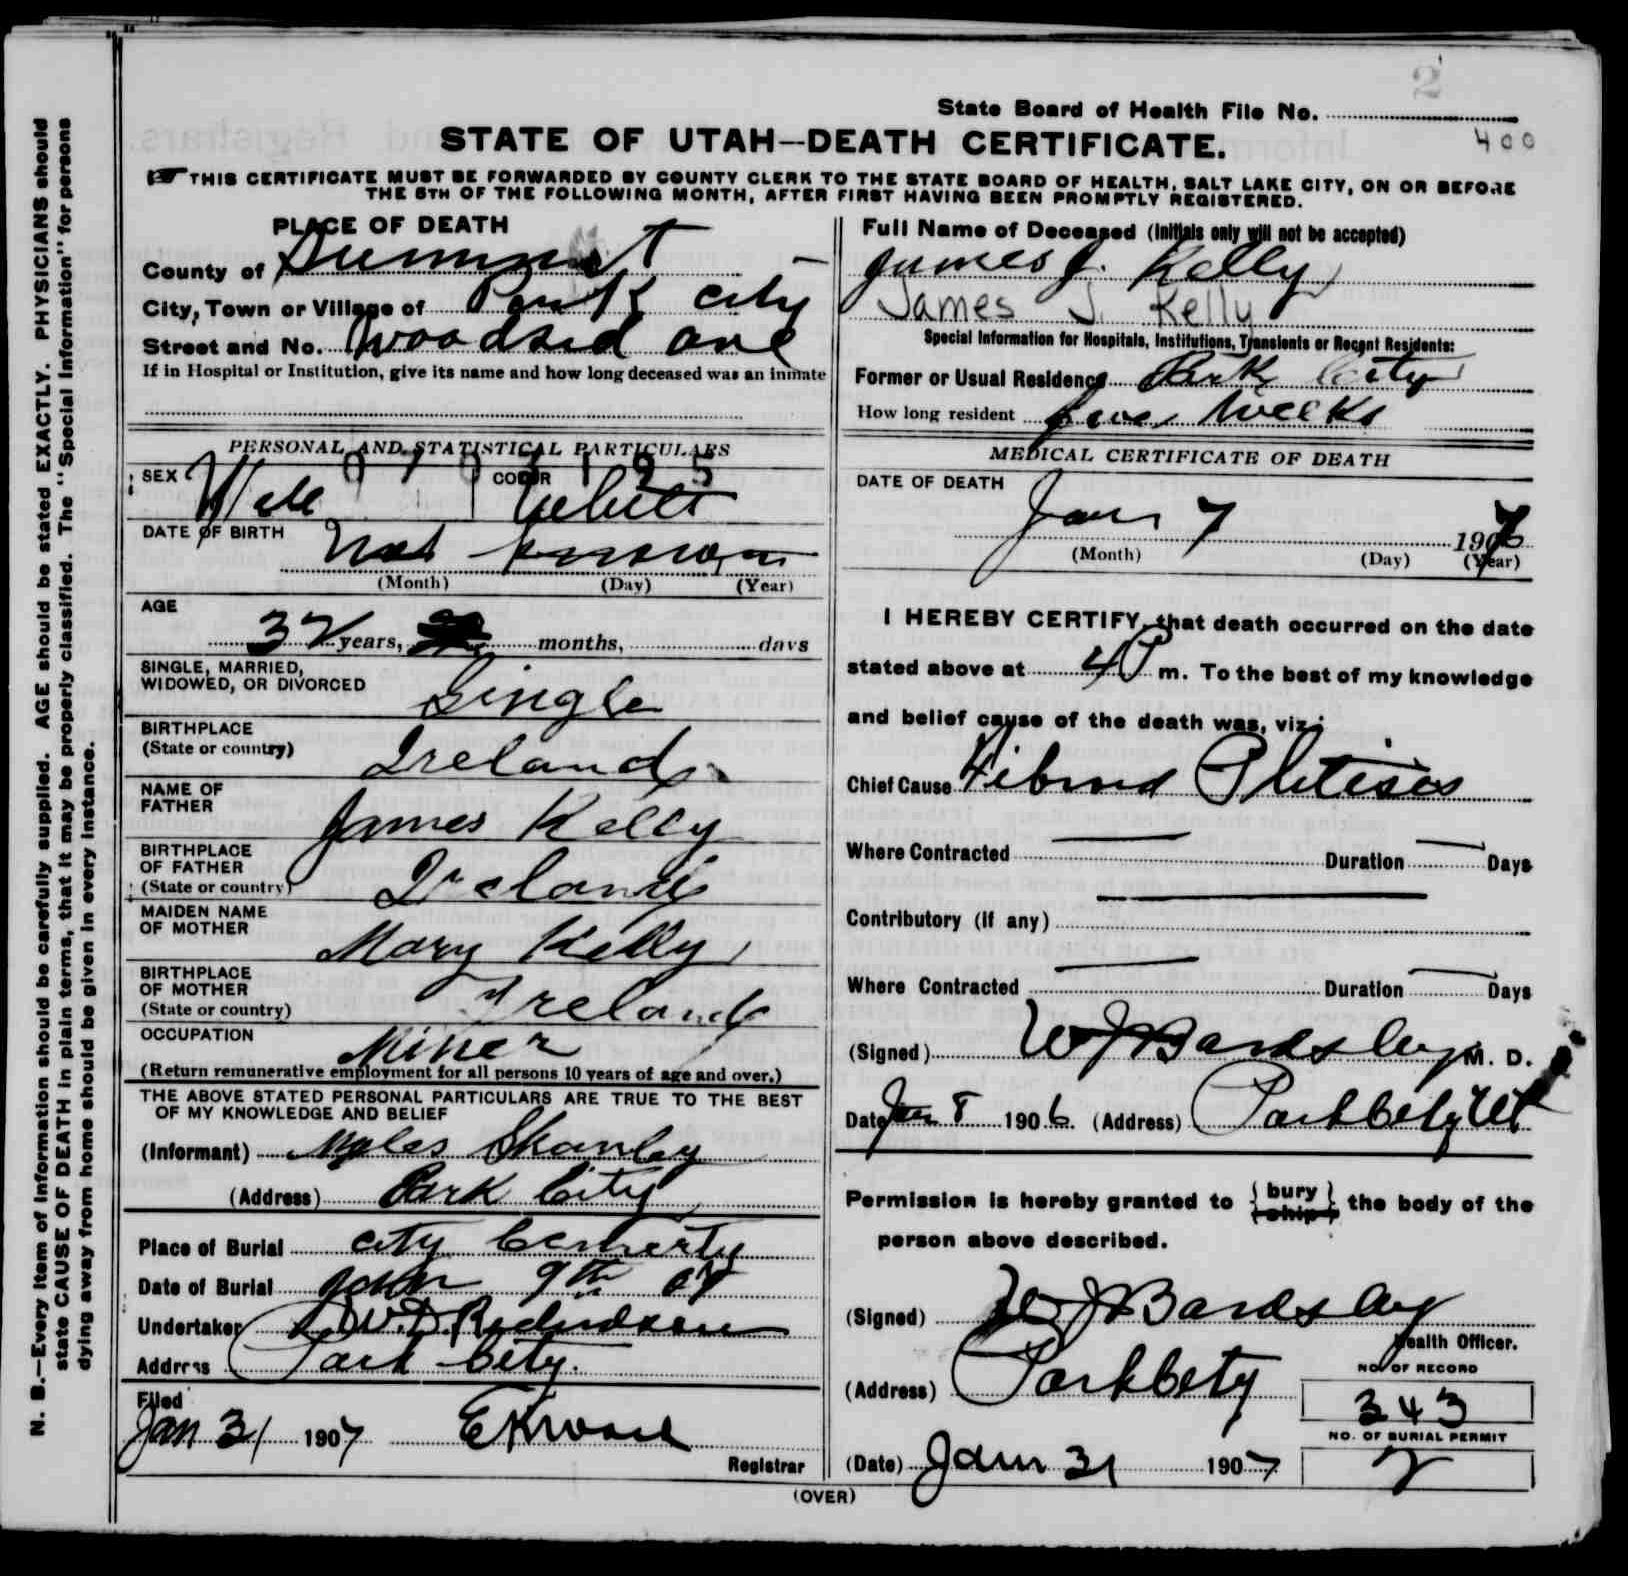 2
State Board of Health File No.
400
STATE OF UTAH—DEATH CERTIFICATE.
THIS CERTIFICATE MUST BE FORWARDED BY COUNTY CLERK TO THE STATE BOARD OF HEALTH, SALT LAKE CITY, ON OR BEFORE
THE 5TH OF THE FOLLOWING MONTH, AFTER FIRST HAVING BEEN PROMPTLY REGISTERED.
PLACE OF DEATH
County of Summit
City, Town or Village of Park City
Street and No. Woodsid ave
If in Hospital or Institution, give its name and how long deceased was an inmate
PERSONAL AND STATISTICAL PARTICULARS
SEX Male COLOR White
DATE OF BIRTH Not known
(Month) (Day) (Year)
AGE
32 years, months, days
SINGLE, MARRIED,
WIDOWED, OR DIVORCED Single
BIRTHPLACE
(State or country) Ireland
NAME OF
FATHER James Kelly
BIRTHPLACE
OF FATHER
(State or country) Ireland
MAIDEN NAME
OF MOTHER Mary Kelly
BIRTHPLACE
OF MOTHER
(State or country) Ireland
OCCUPATION Miner
(Return remunerative employment for all persons 10 years of age and over.)
THE ABOVE STATED PERSONAL PARTICULARS ARE TRUE TO THE BEST
OF MY KNOWLEDGE AND BELIEF
(Informant) Myles Shanley
(Address) Park City
Place of Burial City Cemerty
Date of Burial Jan 9th 07
Undertaker W.D. Richardson
Address Park City.
Filed
Jan 31 1907
Registrar
Full Name of Deceased (Initials only will not be accepted)
James J. Kelly
James J. Kelly
Special Information for Hospitals, Institutions, Transients or Recent Residents:
Former or Usual Residence Park City
How long resident five Weeks
MEDICAL CERTIFICATE OF DEATH
DATE OF DEATH
Jan 7 1907
(Month) (Day) (Year)
I HEREBY CERTIFY, that death occurred on the date
stated above at 4 P m. To the best of my knowledge
and belief cause of the death was, viz:
Chief Cause Fibroid Phtisis
Where Contracted — Duration — Days
Contributory (if any) —
Where Contracted — Duration — Days
(Signed) W J Bardsley M. D.
Date Jan 8 1906. (Address) Park City Ut
Permission is hereby granted to {bury / ship} the body of the
person above described.
(Signed) W J Bardsley
Health Officer.
(Address) Park City
NO. OF RECORD
343
NO. OF BURIAL PERMIT
2
(Date) Jan 31 1907
(OVER)
N. B.—Every item of information should be carefully supplied. AGE should be stated EXACTLY. PHYSICIANS should
state CAUSE OF DEATH in plain terms, that it may be properly classified. The "Special Information" for persons
dying away from home should be given in every instance.